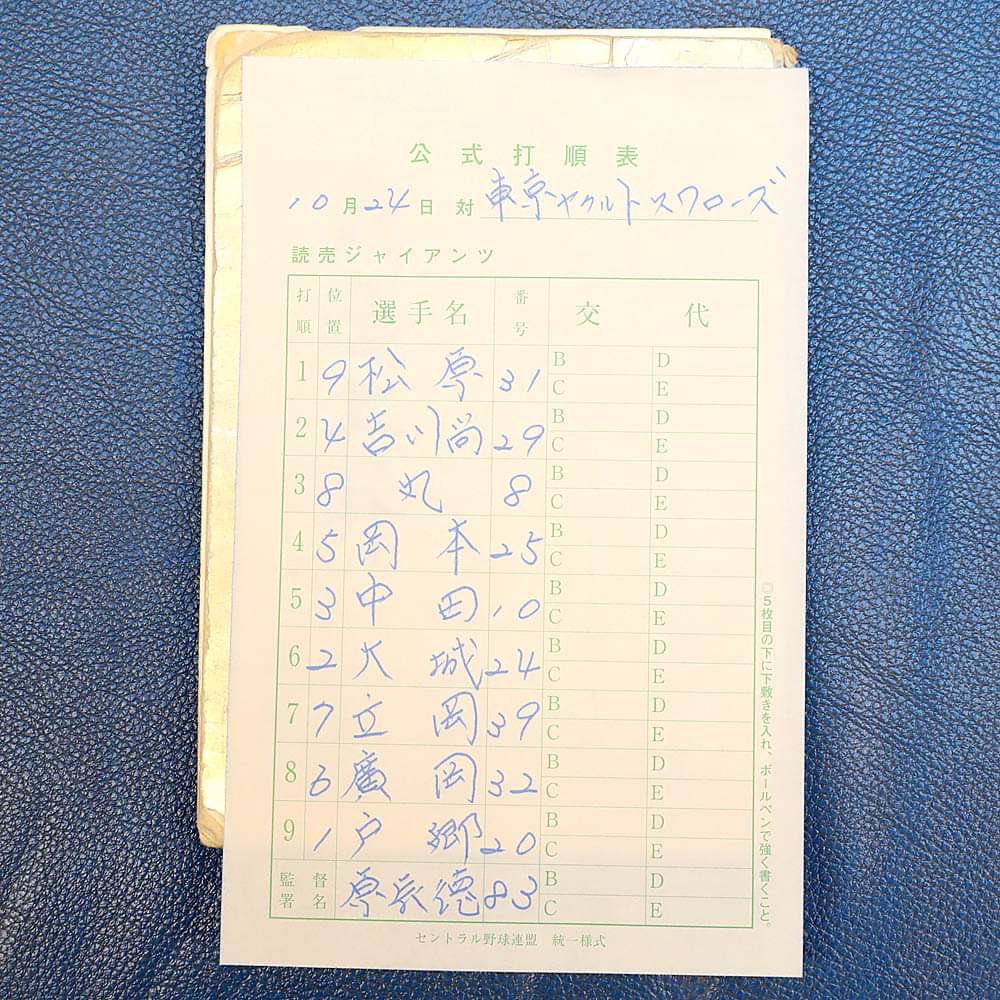 公式打順表
10月24日 対 東京ヤクルトスワローズ
読売ジャイアンツ
打順 位置 選手名 番号 交代
1 9 松原 31 B D
C E
2 4 吉川尚 29 B D
C E
3 8 丸 8 B D
C E
4 5 岡本 25 B D
C E
5 3 中田 10 B D
C E
6 2 大城 24 B D
C E
7 7 立岡 39 B D
C E
8 6 廣岡 32 B D
C E
9 1 戸郷 20 B D
C E
監督署名 原辰徳 83 B D
C E
セントラル野球連盟 統一様式
◎5枚目の下に下敷きを入れ、ボールペンで強く書くこと。